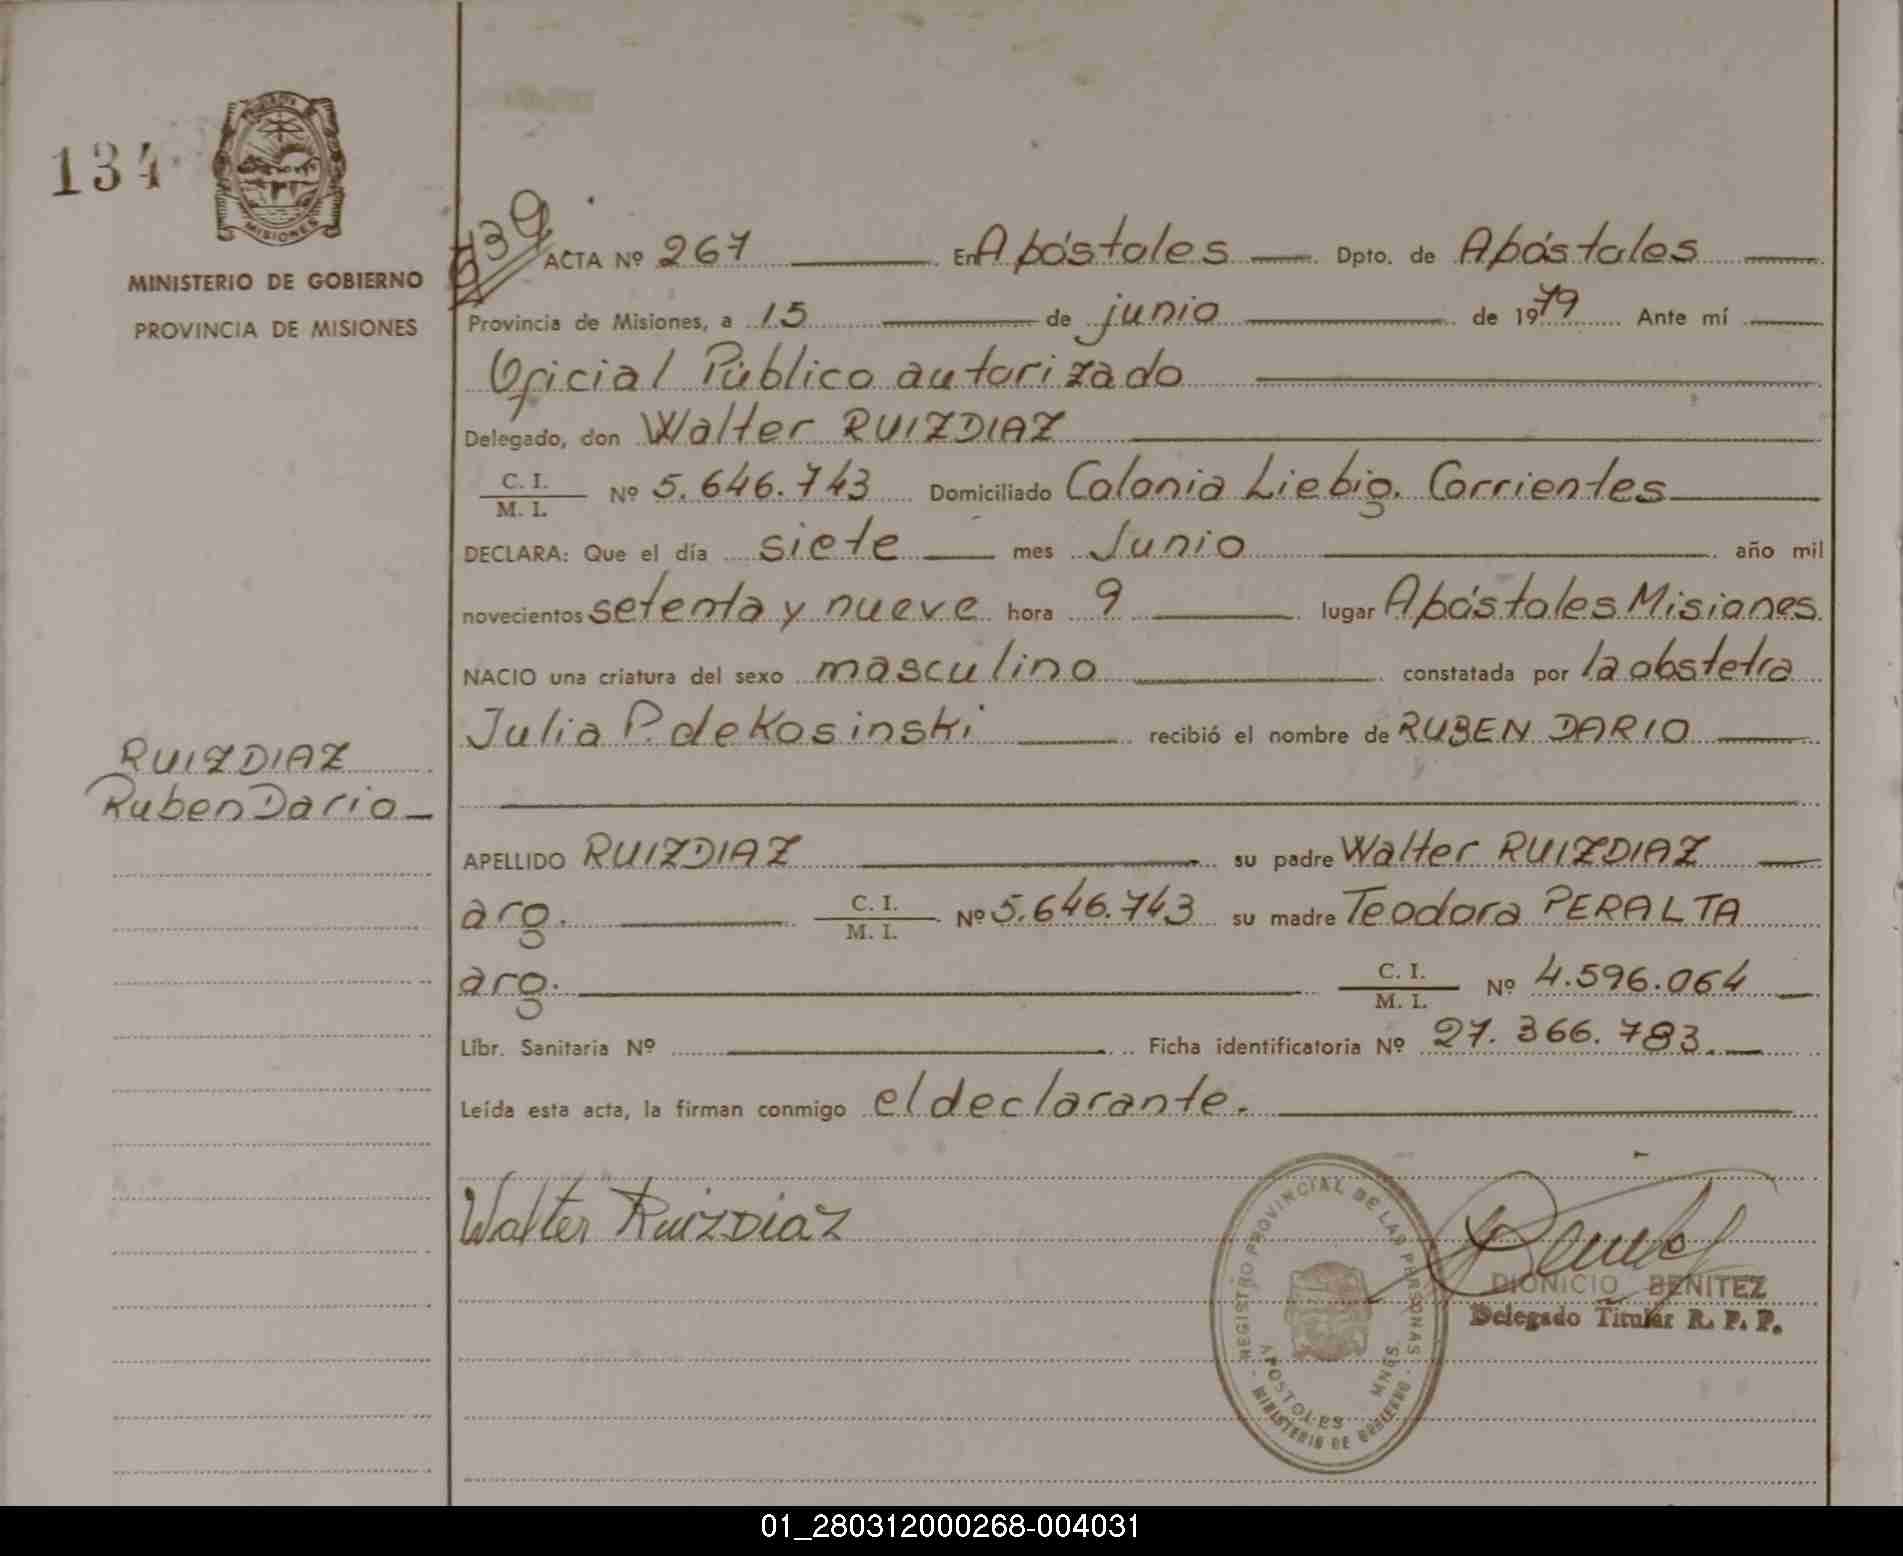 134
MISIONES
MINISTERIO DE GOBIERNO
PROVINCIA DE MISIONES
RUIZDIAZ
Ruben Dario
ACTA Nº 267 En Apóstoles Dpto. de Apóstoles
Provincia de Misiones, a 15 de junio de 1979 Ante mí
Oficial Público autorizado
Delegado, don Walter RUIZDIAZ
C. I. / M. I. Nº 5.646.743 Domiciliado Colonia Liebig. Corrientes
DECLARA: Que el día siete mes Junio año mil
novecientos setenta y nueve hora 9 lugar Apóstoles Misiones
NACIO una criatura del sexo masculino constatada por la obstetra
Julia P. de Kosinski recibió el nombre de RUBEN DARIO
APELLIDO RUIZDIAZ su padre Walter RUIZDIAZ
arg. C. I. / M. I. Nº 5.646.743 su madre Teodora PERALTA
arg. C. I. / M. I. Nº 4.596.064
Libr. Sanitaria Nº Ficha identificatoria Nº 27.366.783.
Leída esta acta, la firman conmigo el declarante.
Walter RuizDiaz
REGISTRO PROVINCIAL DE LAS PERSONAS
APOSTOLES MNES.
MINISTERIO DE GOBIERNO
DIONICIO BENITEZ
Delegado Titular R. P. P.
01_280312000268-004031